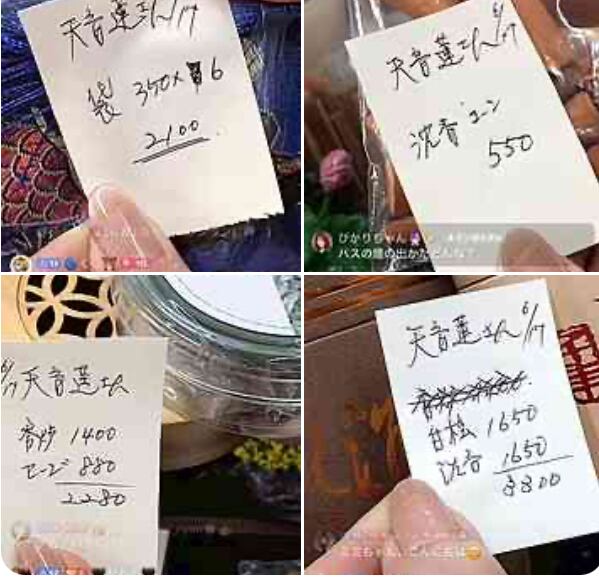 天音蓮さん 6/17
袋 350×6
2100
天音蓮さん 6/17
沈香 コーン
550
ぴかりちゃん
バスの鐘の出かたどんな?
6/17 天音蓮さん
香炉 1400
セージ 880
2280
天音蓮さん 6/17
白檀 1650
沈香 1650
3300